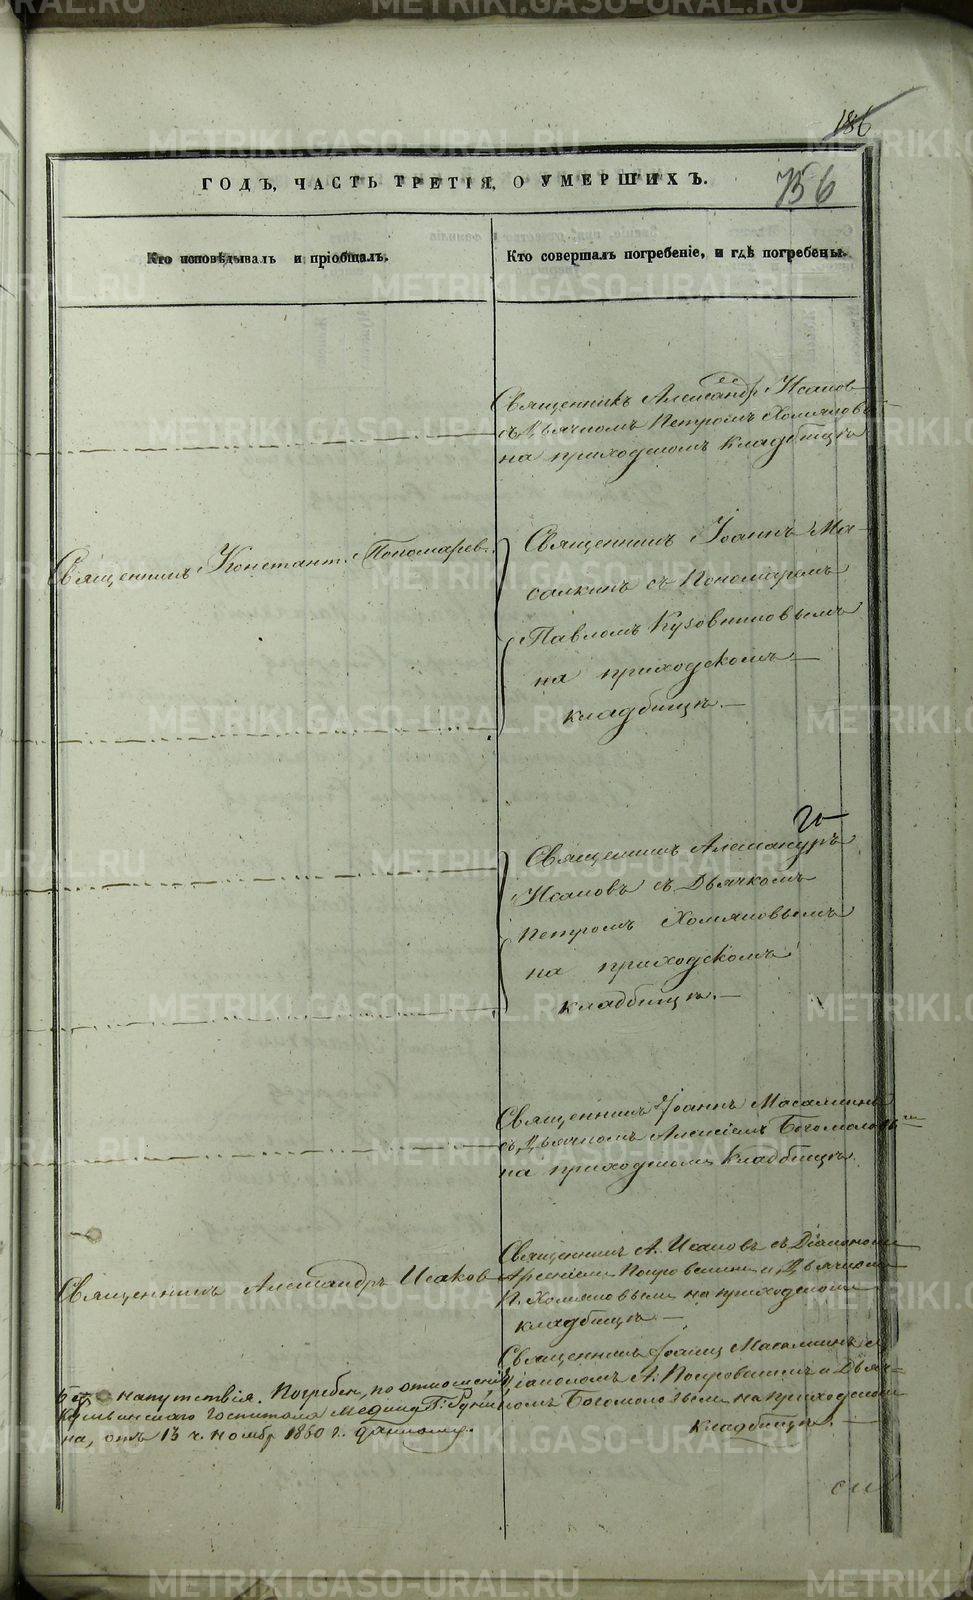 186
ГОДЪ, ЧАСТЬ ТРЕТІЯ, О УМЕРШИХЪ.
756
Кто исповѣдывалъ и пріобщалъ.
Кто совершалъ погребеніе, и гдѣ погребены.
Священникъ Александръ Исаков
съ Дьячкомъ Петромъ Хомяковы
на приходскомъ кладбищѣ
Священникъ Констант. Пономарев.
Священникъ Іоаннъ Ма-
салкинъ съ Пономаремъ
Павломъ Кузовниковымъ
на приходскомъ
кладбищѣ.—
Священникъ Александръ
Исаковъ съ Дьячкомъ
Петромъ Хомяковымъ
на приходскомъ
кладбищѣ.—
Священникъ Іоаннъ Масалкинъ
съ Дьячкомъ Алексіемъ Богомоловымъ
на приходскомъ кладбищѣ.
Священникъ Александръ Исаков
Священникъ А. Исаковъ съ Діакономъ
Арсеніемъ Покровскимъ и Дьячкомъ
П. Хомяковымъ на приходскомъ
кладбищѣ.—
Без напутствія. Погребен, по отношенію
госпиталя
на, отъ 13 ч. ноябр 1860 г. данному.
Священникъ Іоаннъ Масалкинъ с
Діакономъ А. Покровскимъ и Дьяч=
комъ Богомоловым на приходском
кладбищѣ.—
METRIKI.GASO-URAL.RU